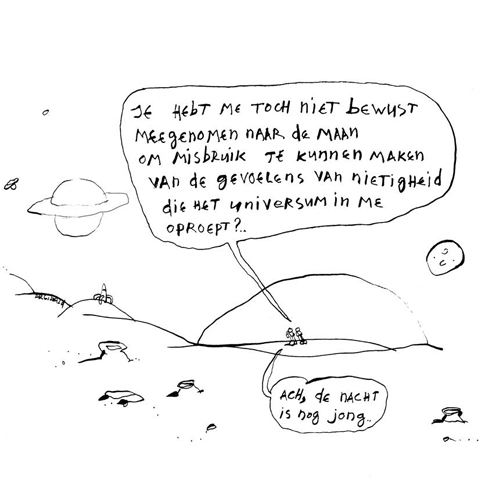 Je hebt me toch niet bewust
meegenomen naar de maan
om misbruik te kunnen maken
van de gevoelens van nietigheid
die het universum in me
oproept?..
Ach, de nacht
is nog jong..